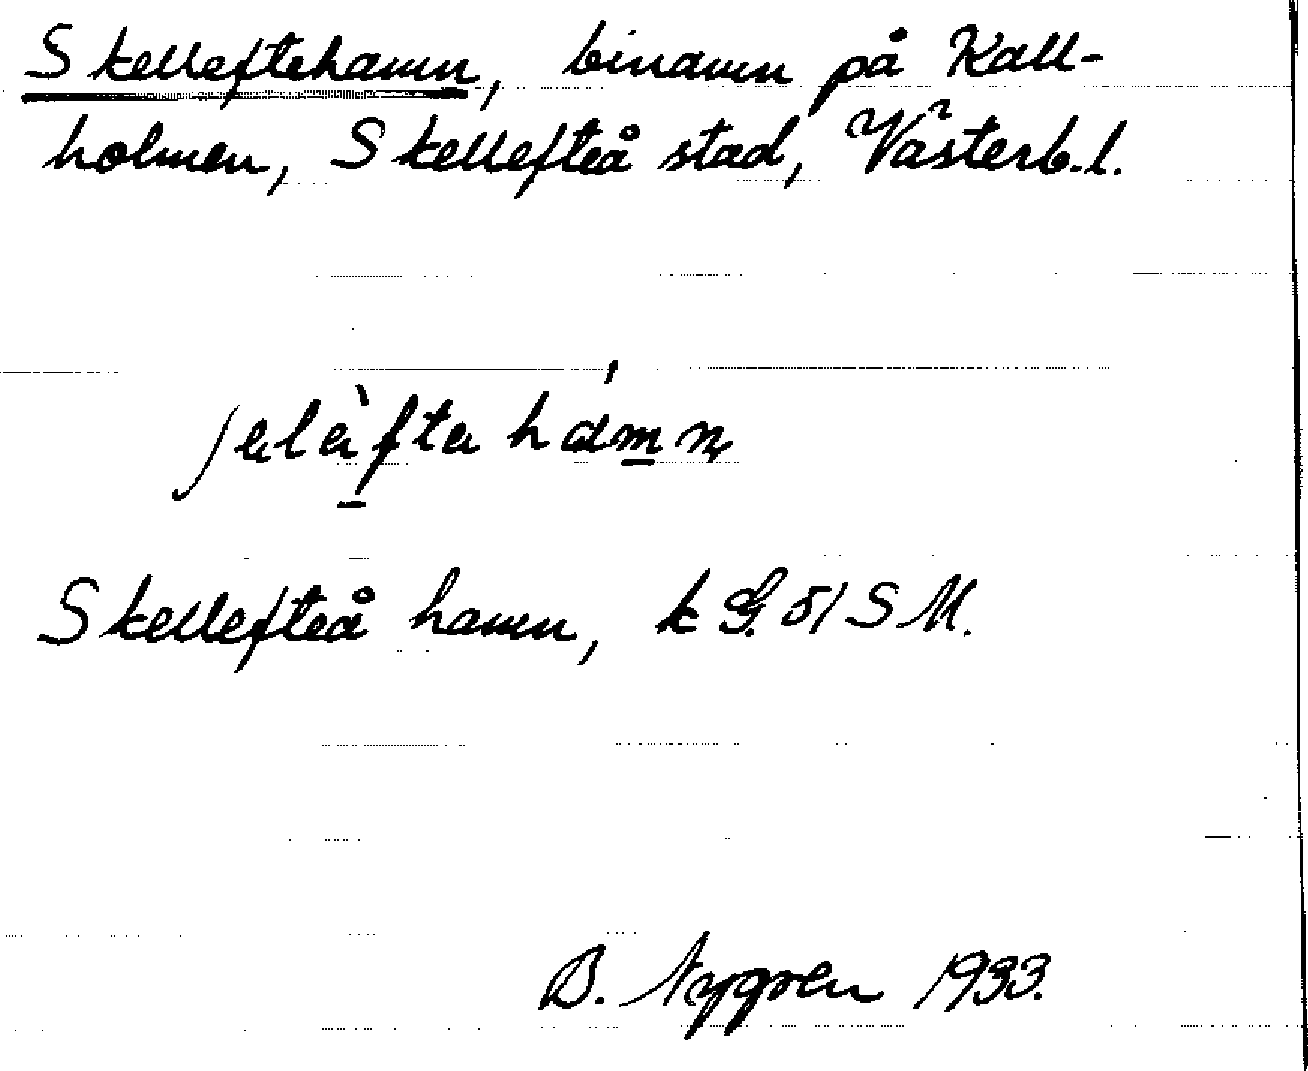 Skelleftehamn, binamn på Kall-
holmen, Skellefteå stad, Västerb. l.
Skellefteå hamn, k G. 51 S M.
B. Nygren 1933.